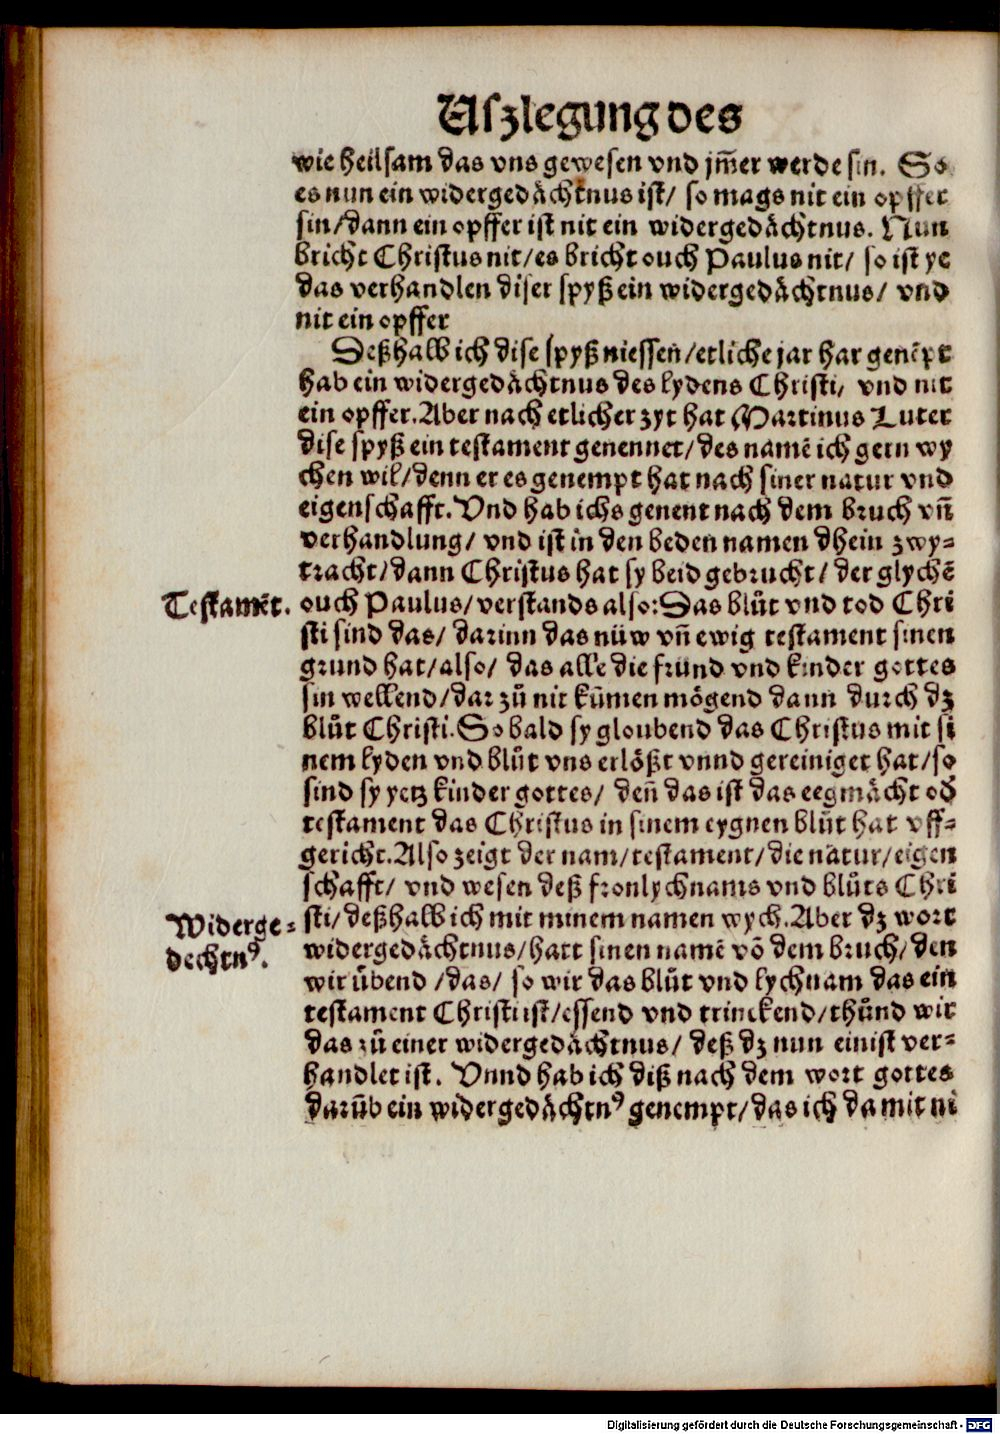 Uszlegung des
wie heilsam das vns gewesen vnd jm̃er werde sin. So
es nun ein widergedächtnus ist/ so mags nit ein opffer
sin/dann ein opffer ist nit ein widergedächtnus. Nun
bricht Christus nit/es bricht ouch Paulus nit/ so ist ye
das verhandlen diser spyß ein widergedächtnus/ vnd
nit ein opffer
Deßhalb ich dise spyß niessen/etliche jar har genẽpt
hab ein widergedächtnus des lydens Christi/ vnd nit
ein opffer.Aber nach etlicher zyt hat Martinus Luter
dise spyß ein testament genennet/des namẽ ich gern wy
chen wil/denn er es genempt hat nach siner natur vnd
eigenschafft.Vnd hab ichs genent nach dem bruch vñ
verhandlung/ vnd ist in den beden namen dhein zwy-
tracht/dann Christus hat sy beid gebrucht/ der glychẽ
Testamẽt.
ouch Paulus/verstands also:Das blůt vnd tod Chri
sti sind das/ darinn das nüw vñ ewig testament sinen
grund hat/also/ das alle die fründ vnd kinder gottes
sin wellend/dar zů nit kũmen mögend dann durch dz
blůt Christi.So bald sy gloubend das Christus mit si
nem lyden vnd blůt vns erlößt vnnd gereiniget hat/so
sind sy yetz kinder gottes/ deñ das ist das eegmächt od̕
testament das Christus in sinem eygnen blůt hat vff-
gericht.Also zeigt der nam/testament/die natur/eigen
schafft/ vnd wesen deß fronlychnams vnd blůts Chri
Widerge-
dechtnꝰ.
sti/deßhalb ich mit minem namen wych.Aber dz wort
widergedächtnus/hatt sinen namẽ võ dem bruch/den
wir übend /das/ so wir das blůt vnd lychnam das ein
testament Christi ist/essend vnd trinckend/thůnd wir
das zů einer widergedächtnus/ deß dz nun einist ver-
handlet ist. Vnnd hab ich diß nach dem wort gottes
darũb ein widergedächtnꝰ genempt/das ich damit ni
Digitalisierung gefördert durch die Deutsche Forschungsgemeinschaft - DFG